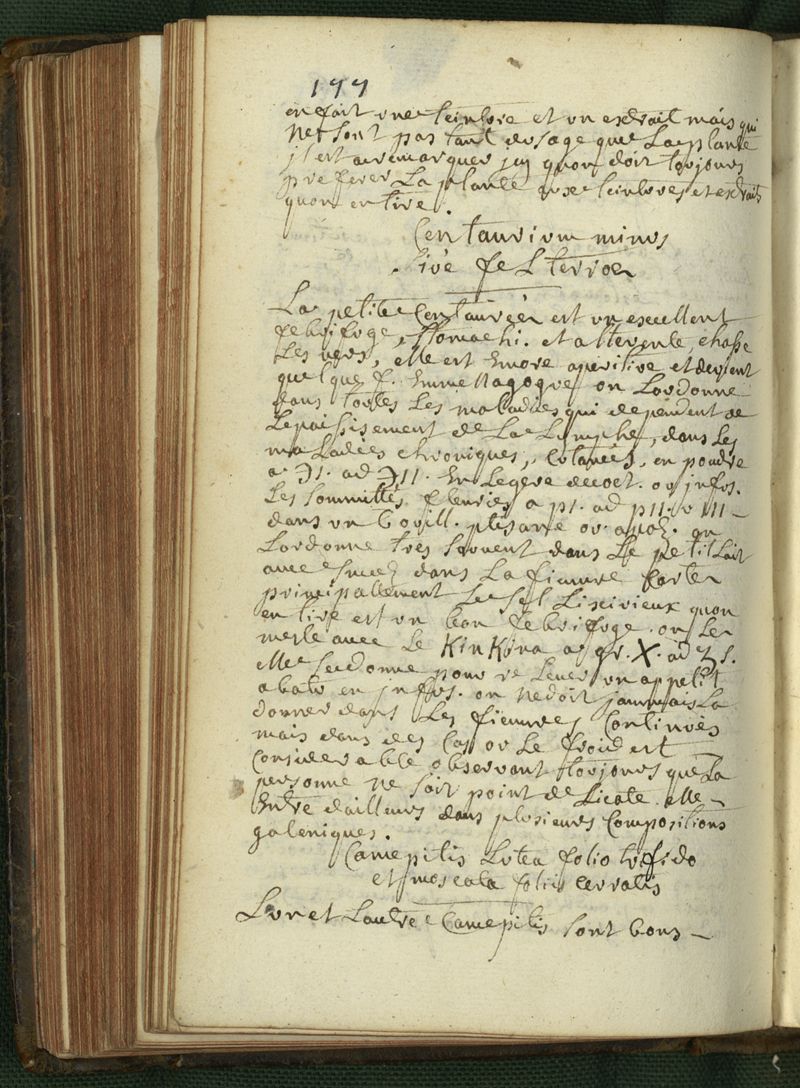 177
en fait une teinture et un extrait mais qui
ne sont pas tant dusage que La plante
jl est a remarquer jcy quon doit toujours
preferer La plante aux teintures et extraits
quon en tire.
Centaurium minus
sive fel terrae
La petite Centaurée est un excellent
febrifuge, stomachi. et attenente, chasse
Les vers, elle est encore aperitive et devient
quelque f. Emmenagogue on Lordonne
dans toutes Les maladies qui dependent de
Lepaississement de La Lymphe, dans Les
maladies chroniques, cutanées, en poudre
a ℈1. ad ℈11. En Legere decoct. ou jnfus.
Les sommittés fleuries a p1. ad p11. v 111
dans un bouill. ptisane ou apoz. on
Lordonne tres souvent dans Le petit Lait
avec succez dans La fievre carte
principallement Le sel Lixivieux quon
en tire est un bon febrifuge. on Le
mesle avec Le KinKina a gr. X. ad ʒ s.
elle se donne pour relever un appetit
abatu en jnfus. on ne doit jammais La
donner dans Les fievres Continues
mais dans des Cas ou Le froid est
Considerable observant toujours que La
personne ne soit point delicate. elle
Entre dailleurs dans plusieurs Compositions
galeniques.
Camepitis Lutea folio trifido
et moscata foliis serratis
Lun et Lautre Camepitis sont bons